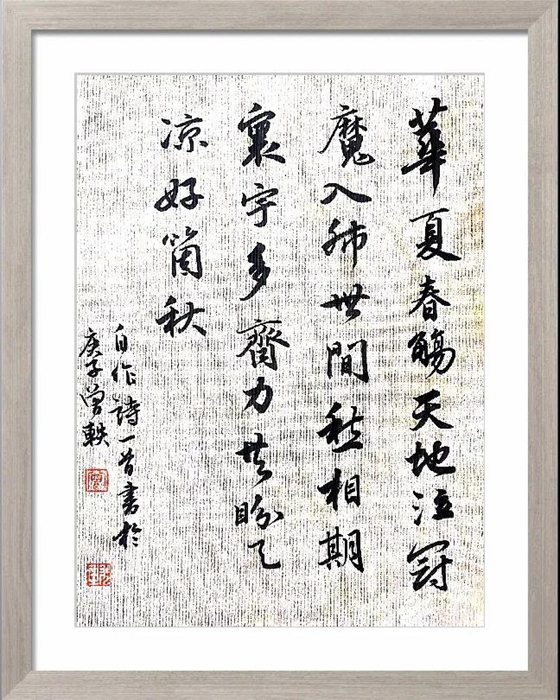 華夏春觴天地泣冠
魔入肺世間愁相期
寰宇多齊力共盼天
凉好箇秋
自作詩一首書於
庚子曾軼